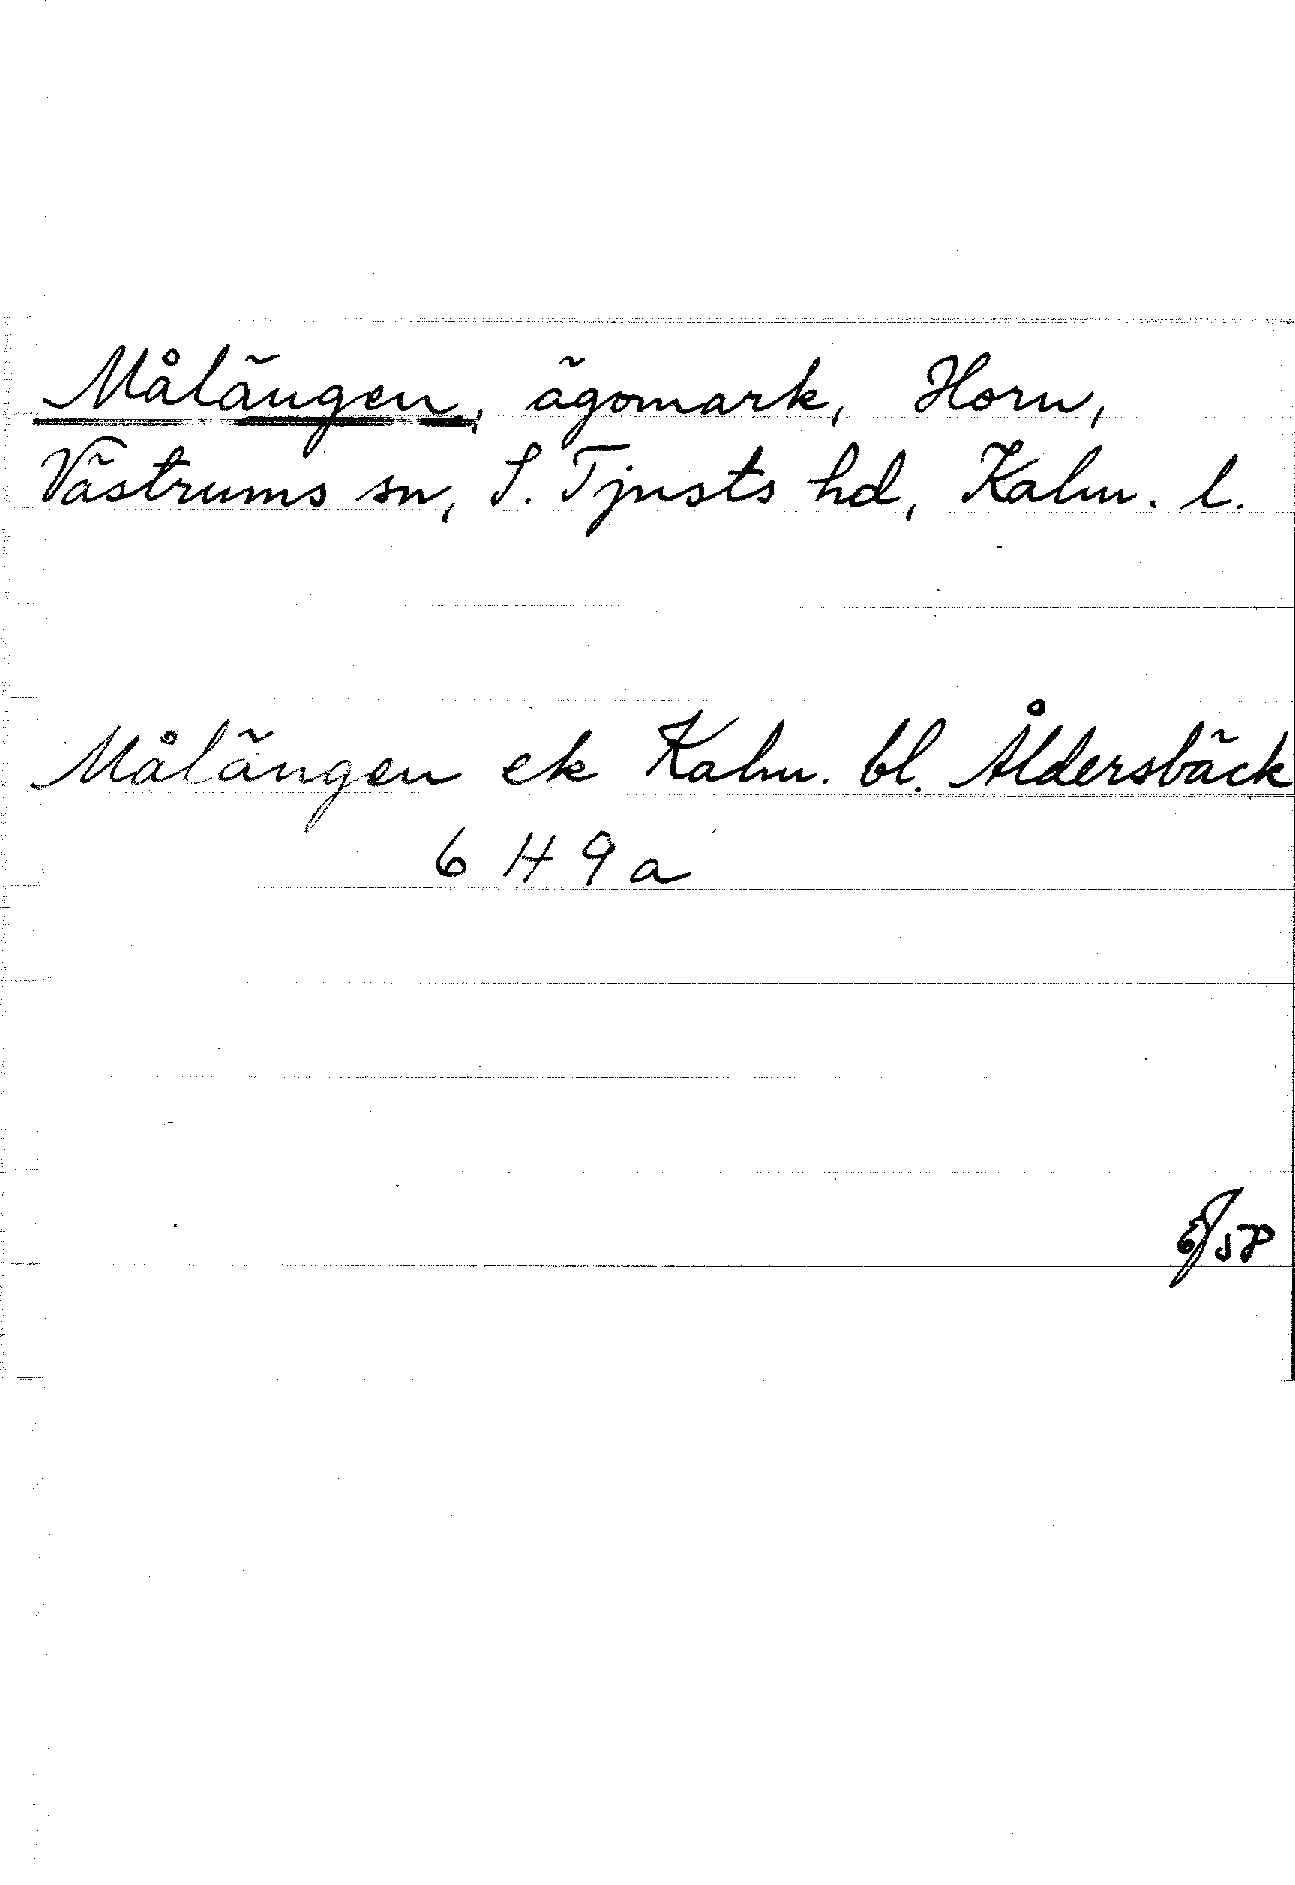 Målängen, ägomark, Horn,
Västrums sn, S. Tjusts hd, Kalm. l.
Målängen ek Kalm. bl. Åldersbäck
6 H 9 a
6/58